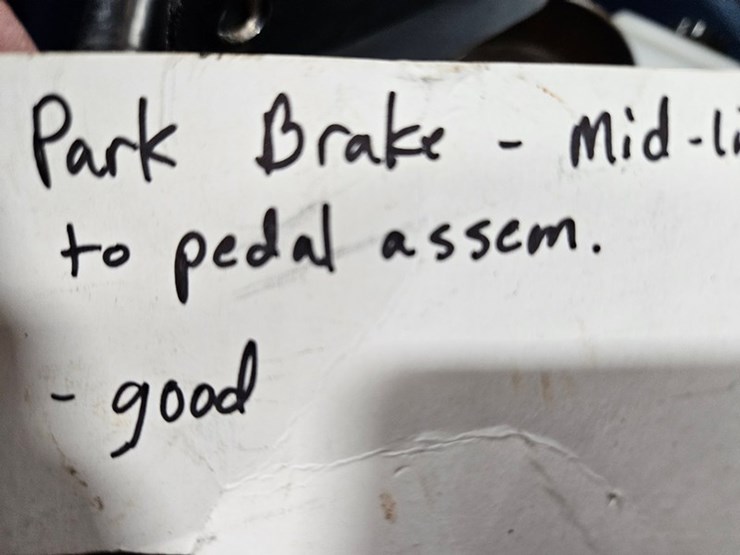 Park Brake - Mid-li
to pedal assem.
- good